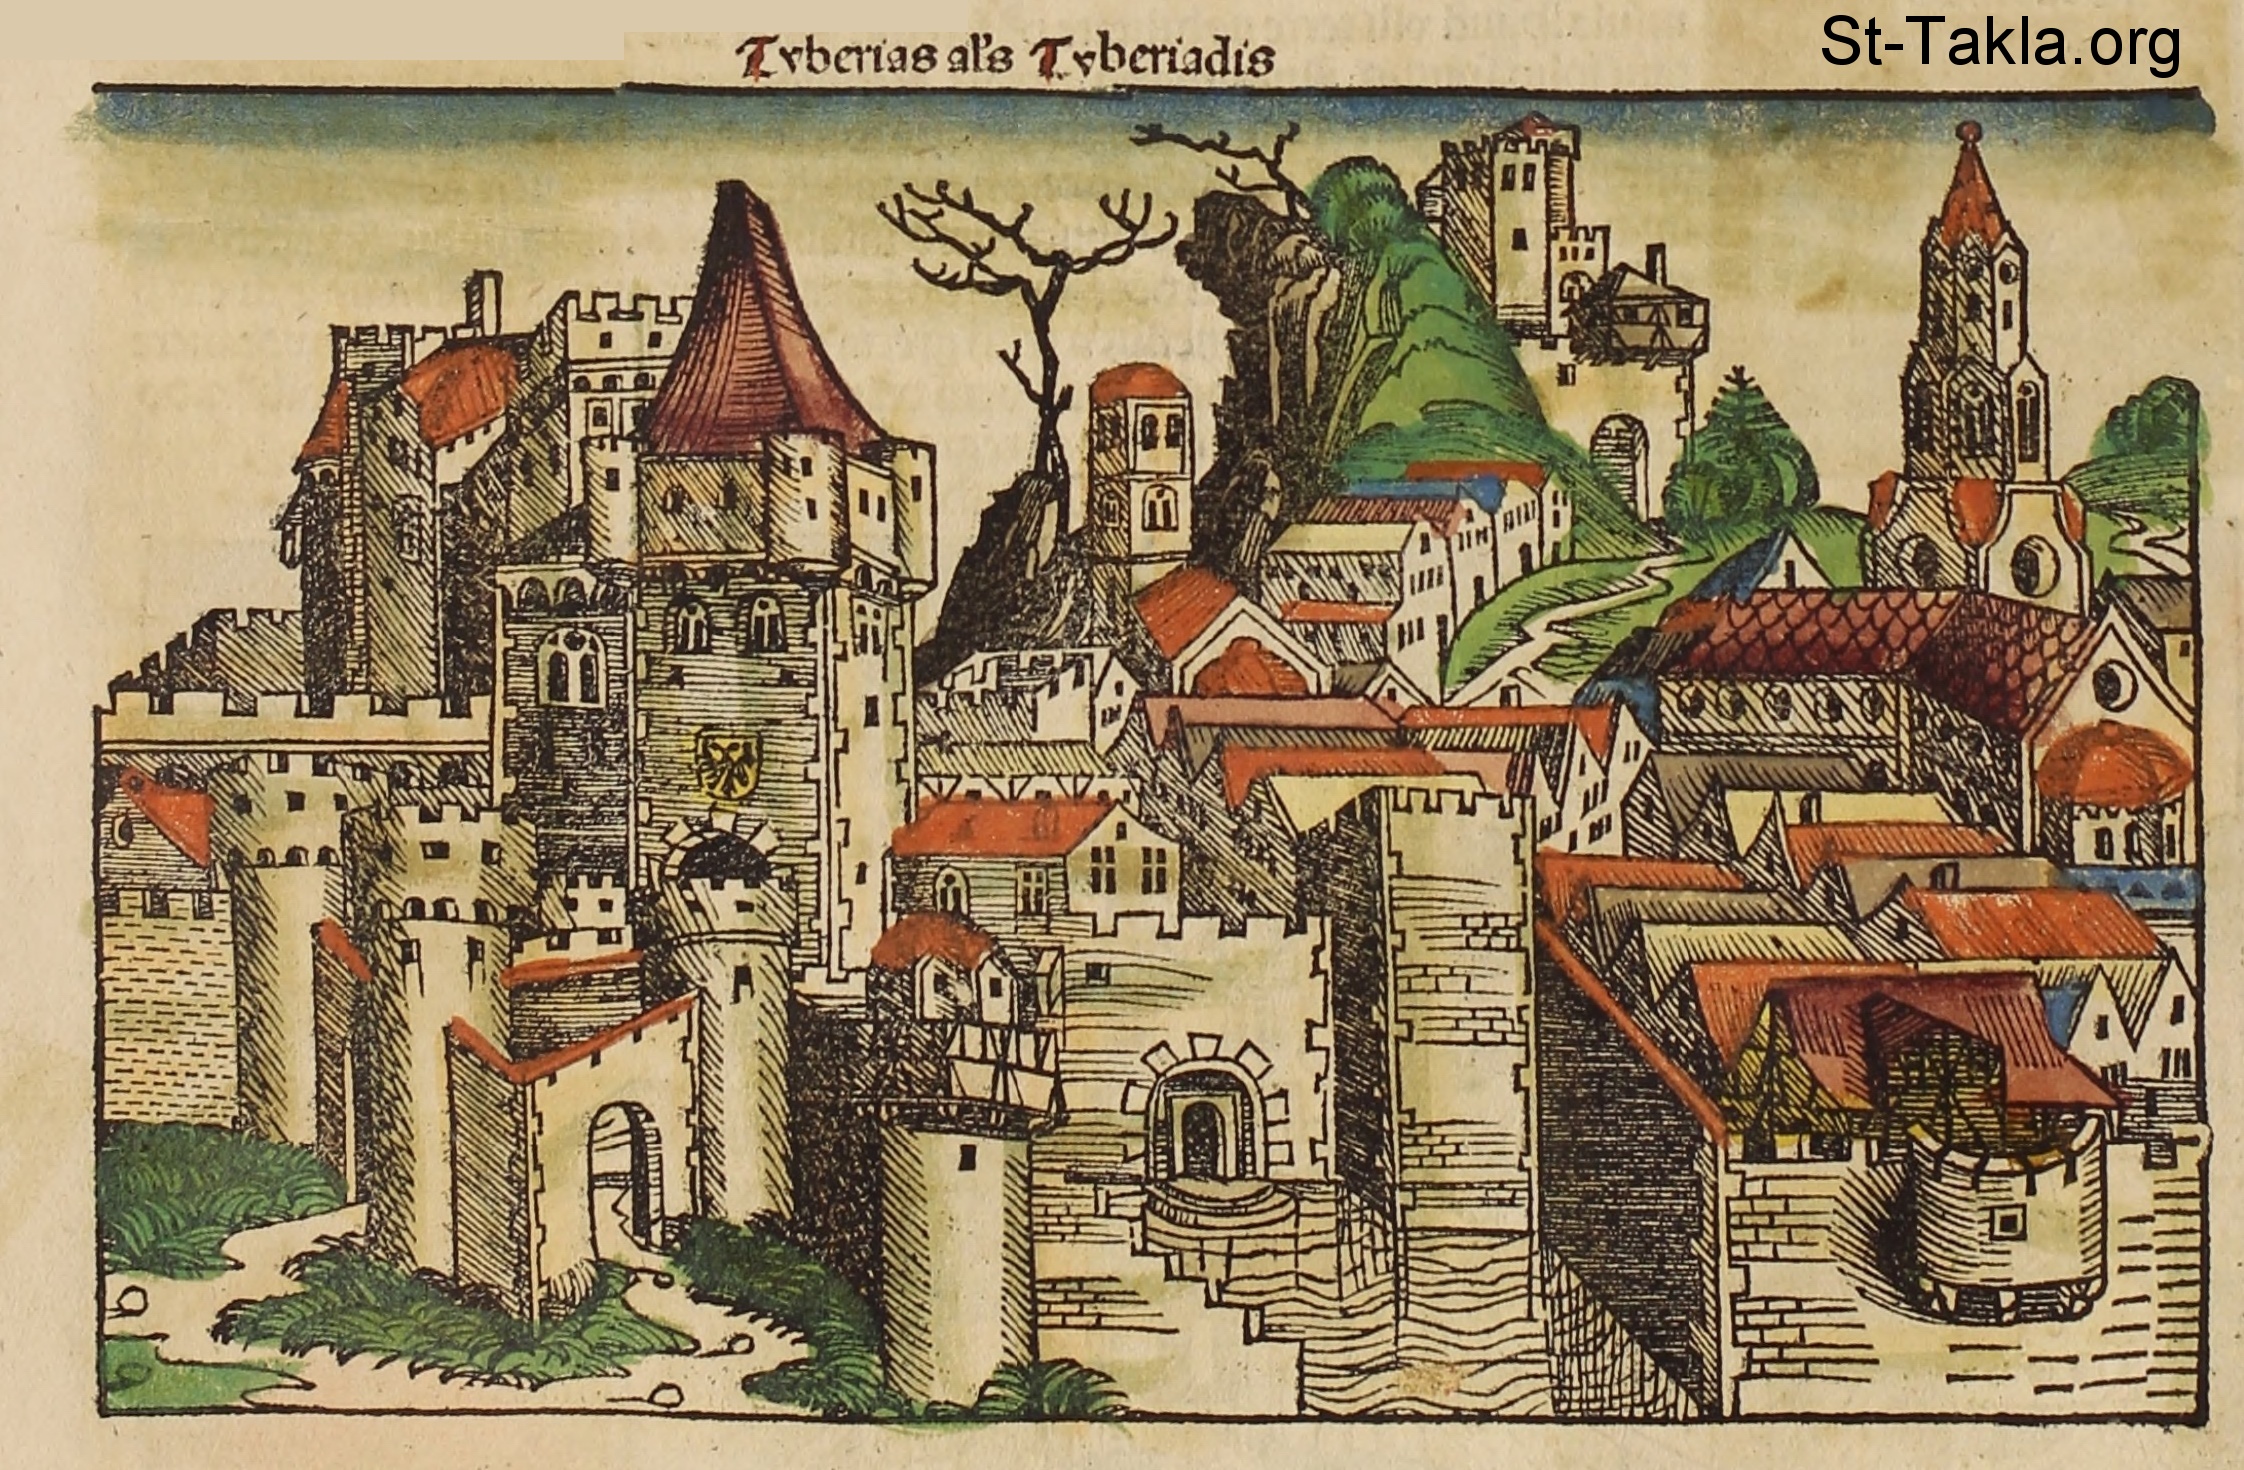 Tyberias al's Tyberiadis
St-Takla.org